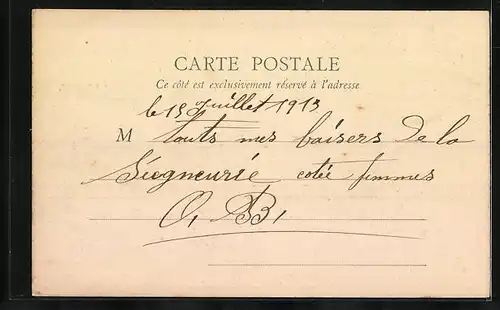 CARTE POSTALE
Ce côté est exclusivement réservé à l'adresse
le 15 Juillet 1913
M touts mes baisers de la
Séogneurié cotée femmes
O, B,